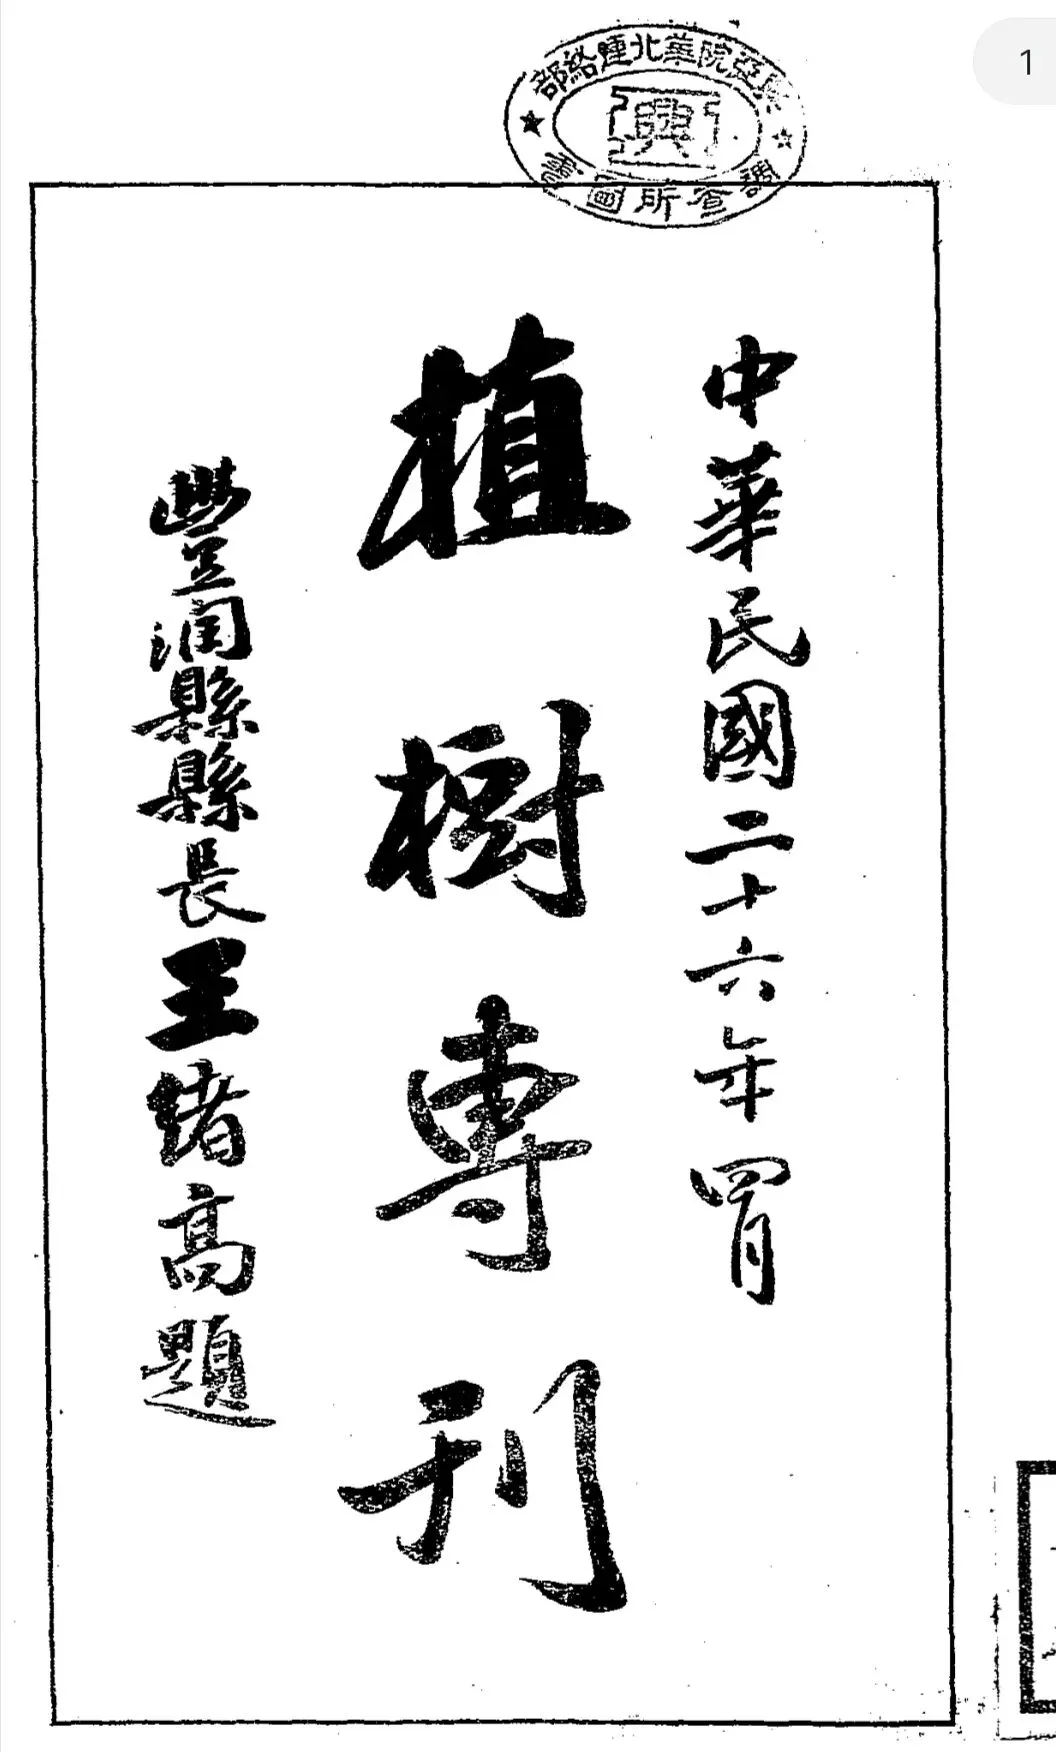 1
興亞院華北連絡部
興
調查所圖書
中華民國二十六年四月
植樹專刊
豐潤縣縣長王緒高題